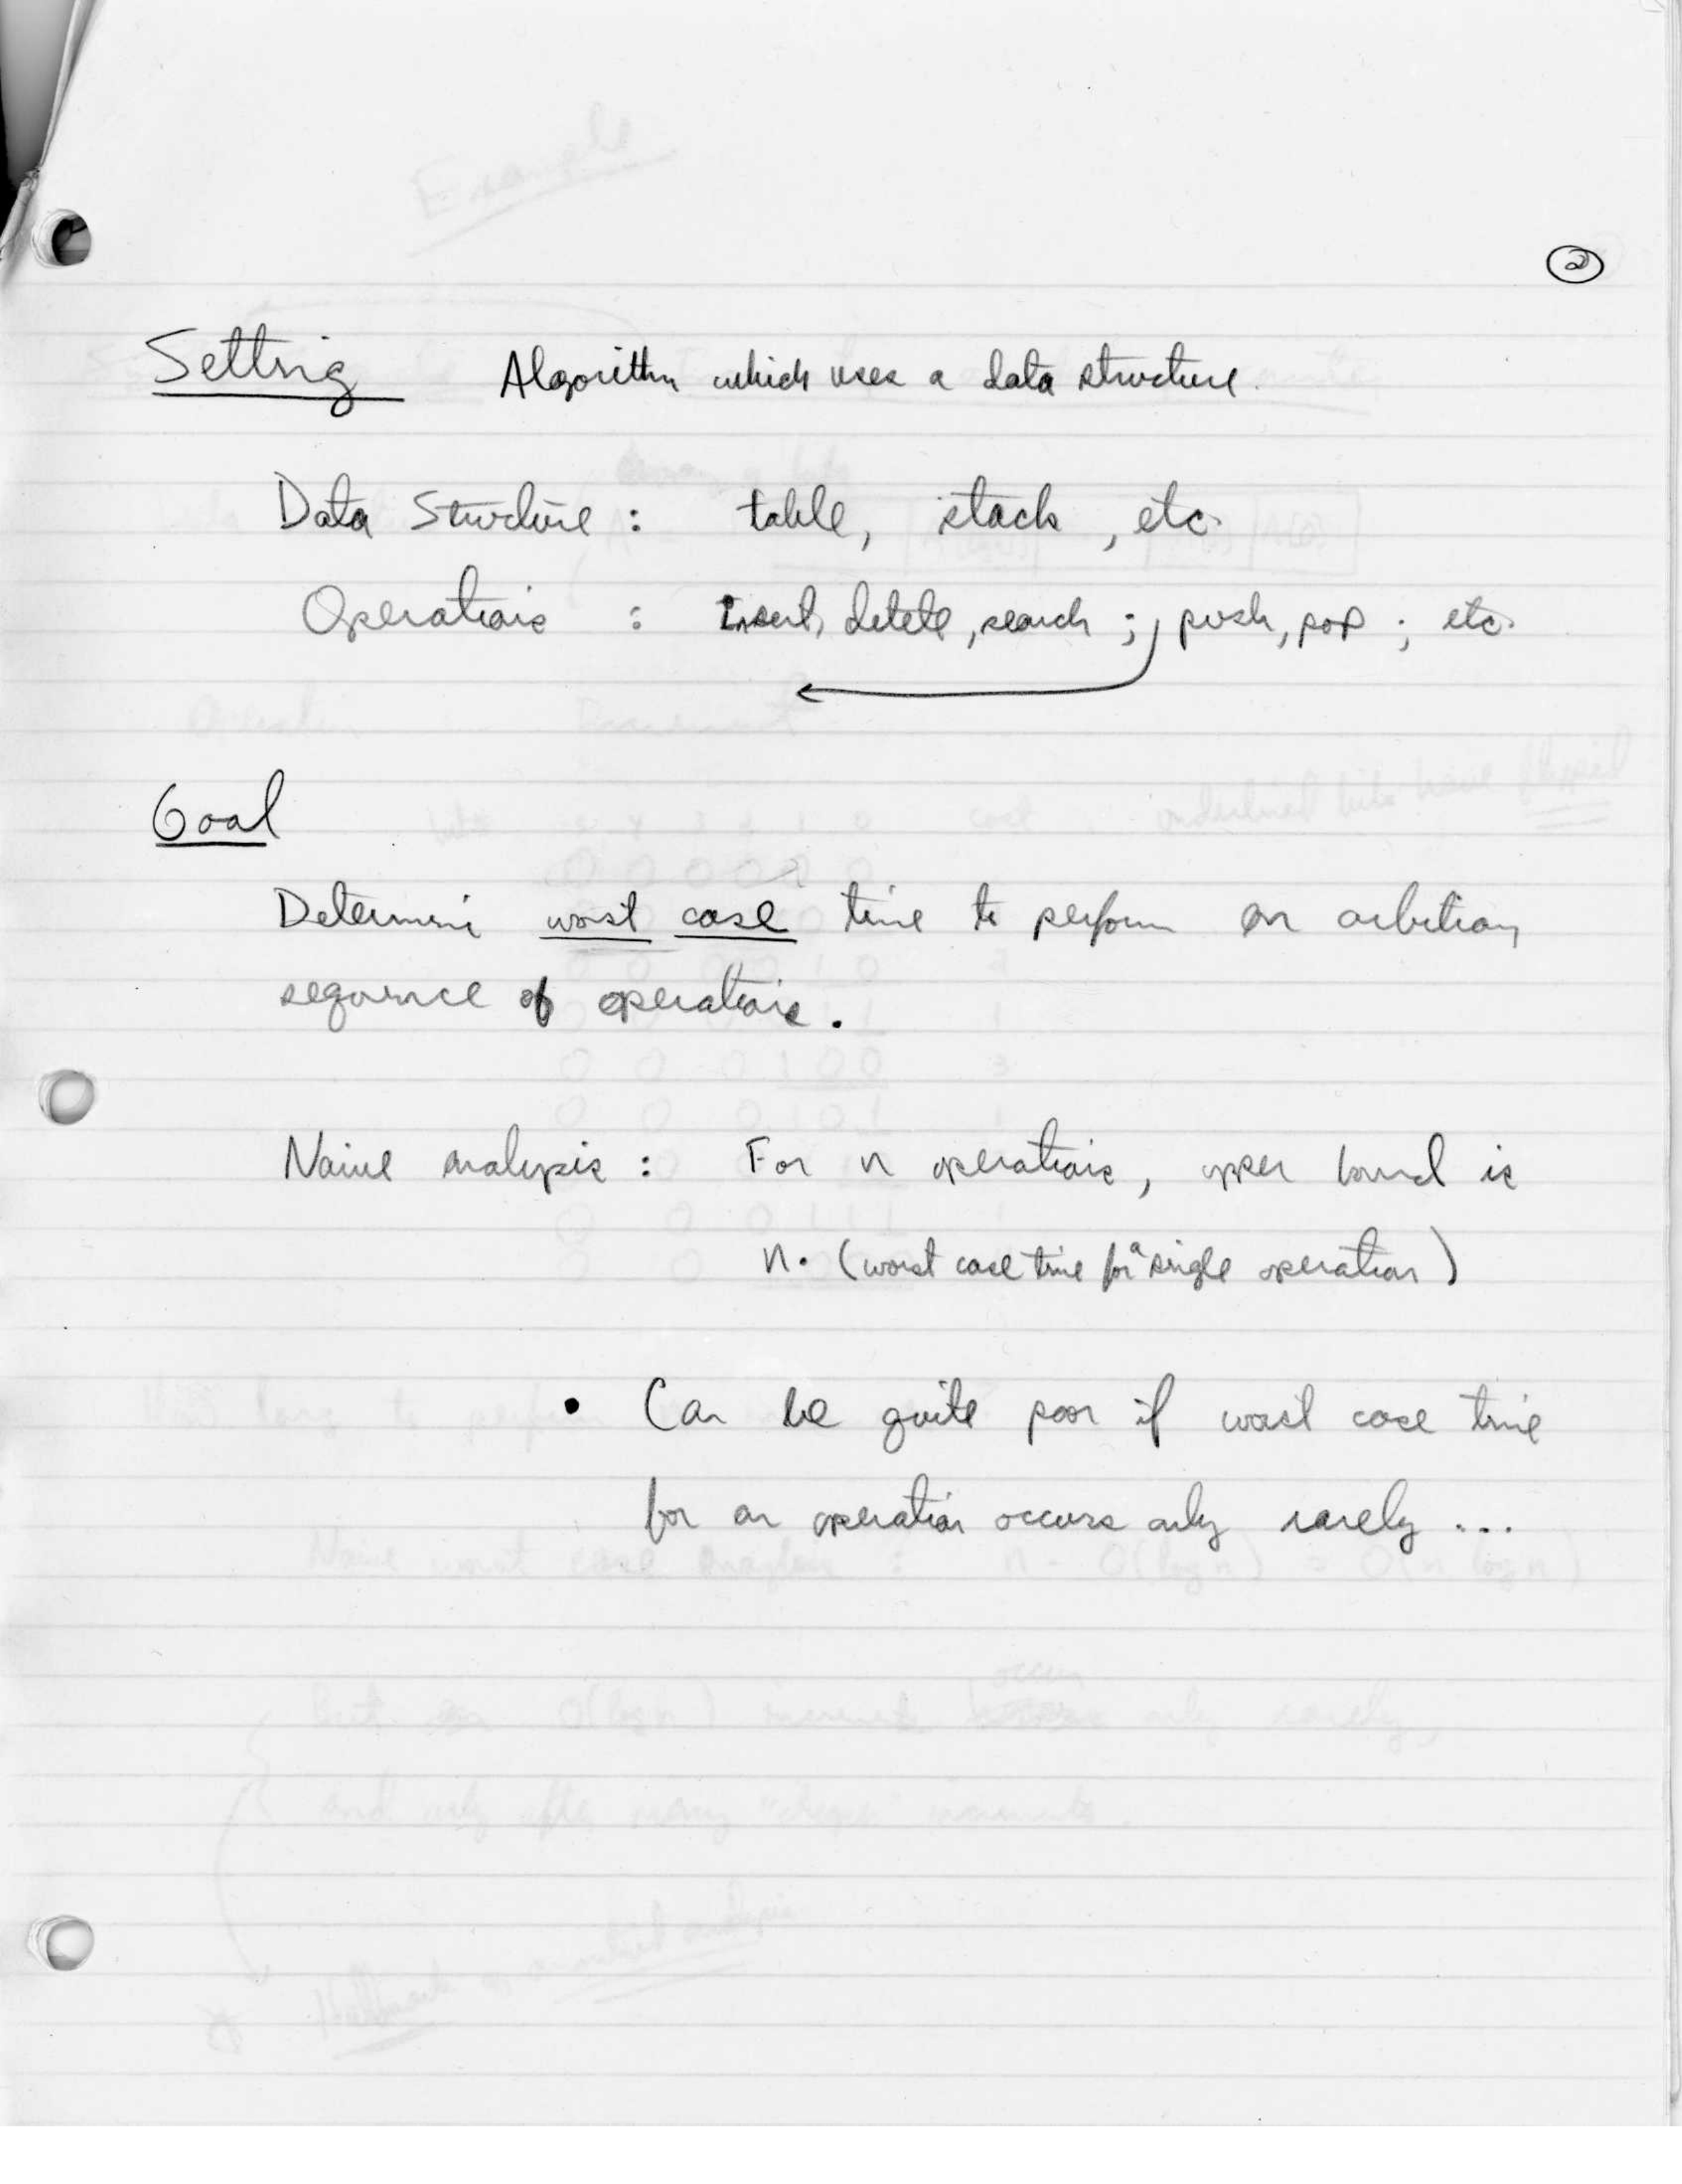 2
Setting Algorithm which uses a data structure.
Data Structure : table, stack, etc.
Operations : Insert, delete, search ; push, pop ; etc.
Goal
Determine worst case time to perform an arbitrary
sequence of operations.
Naive analysis : For n operations, upper bound is
n. (worst case time for a single operation)
• Can be quite poor if worst case time
for an operation occurs only rarely ...